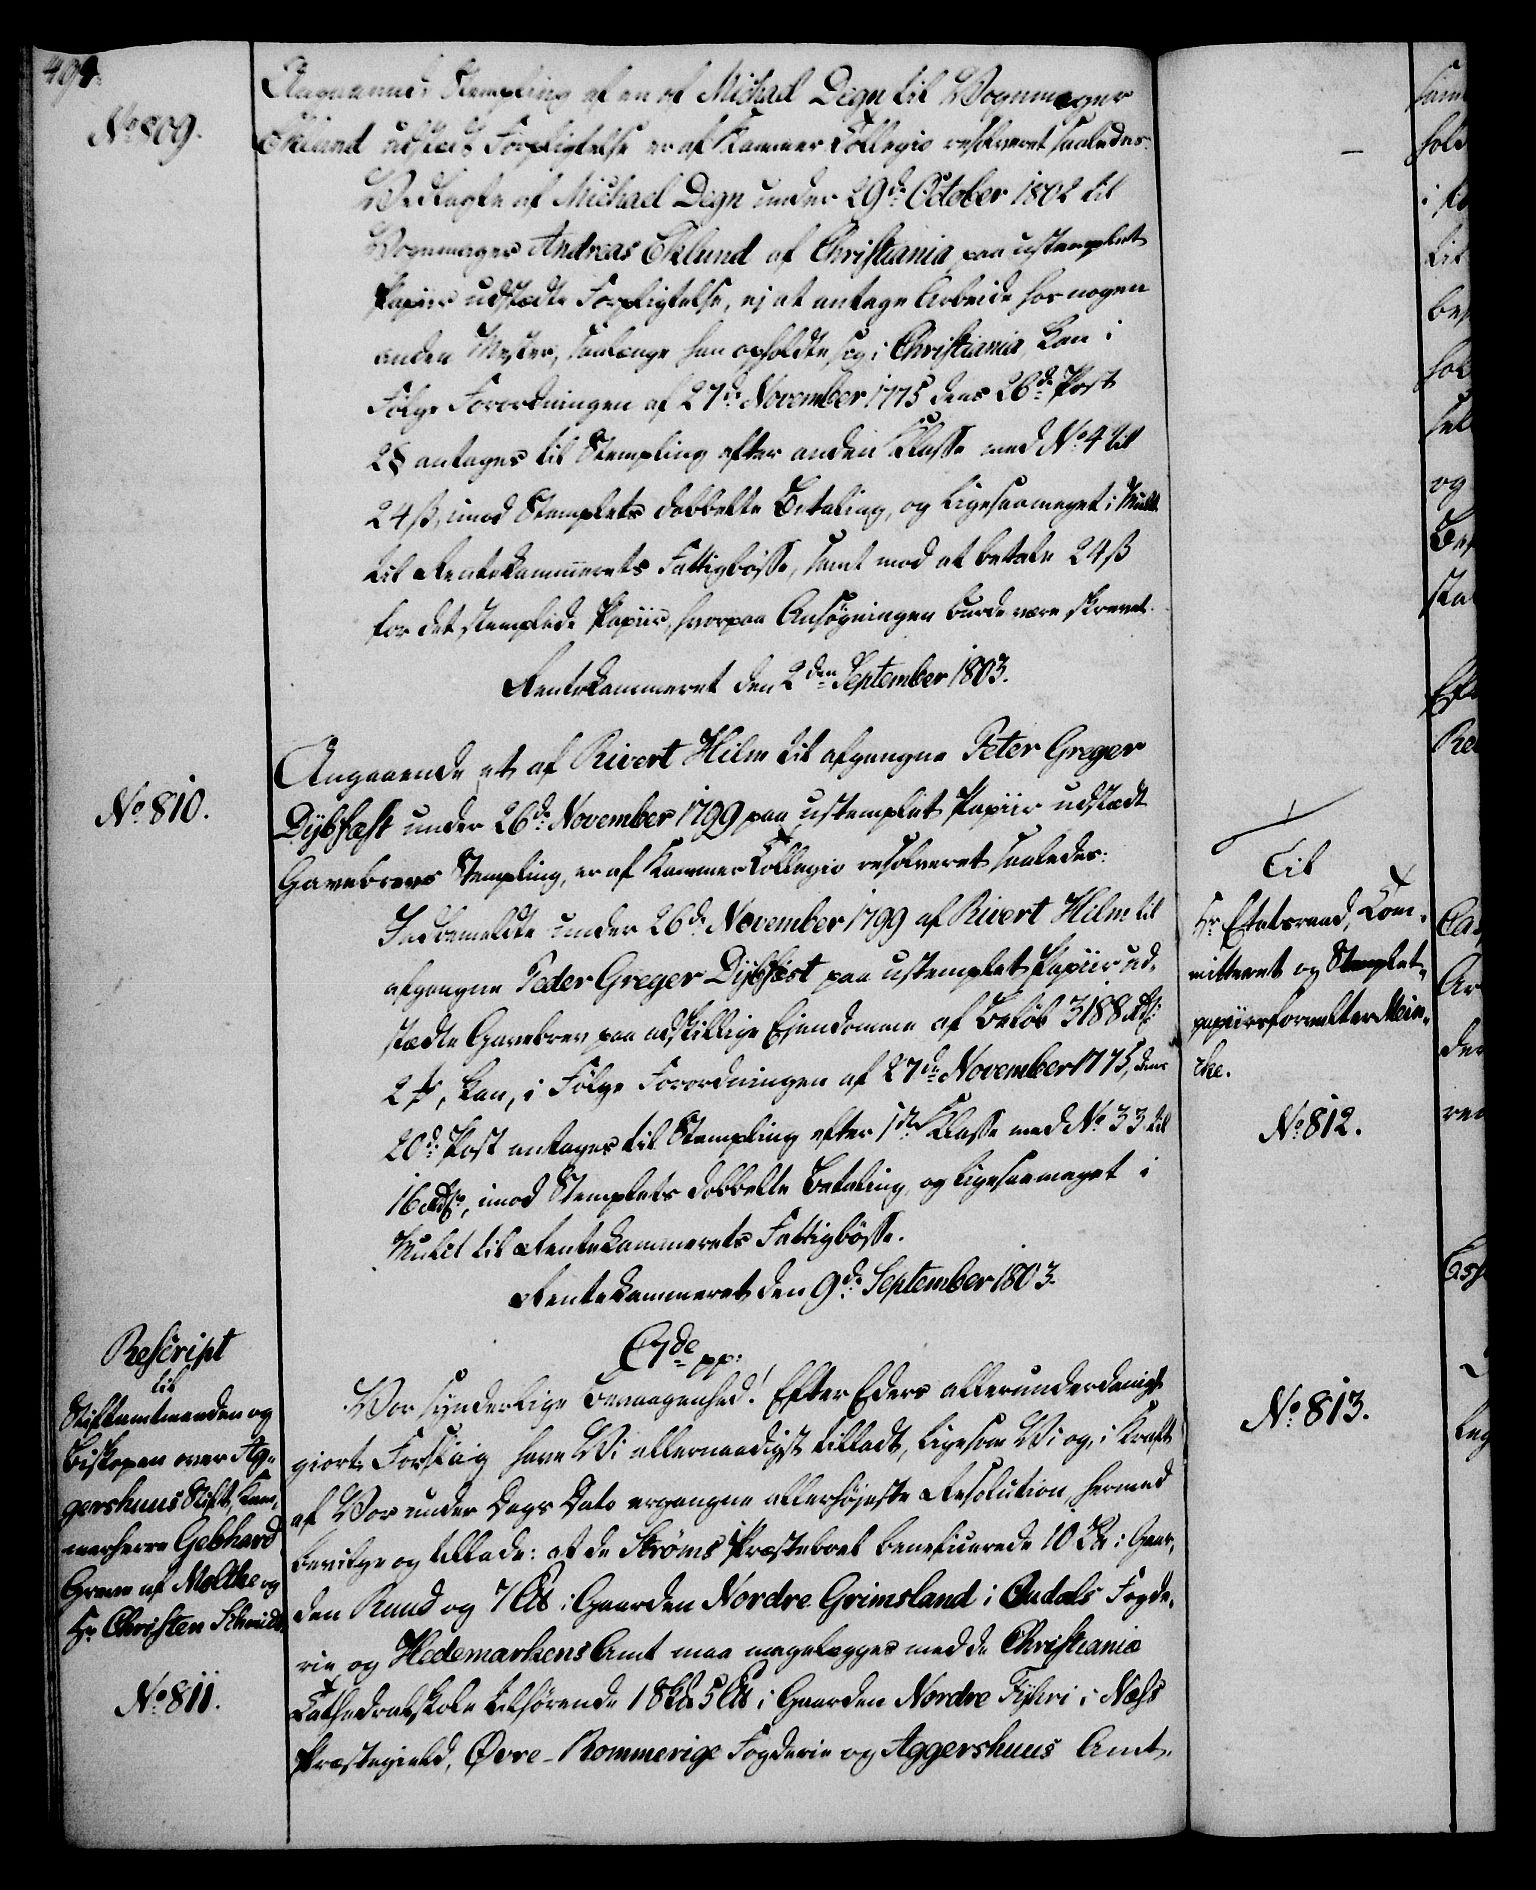 494.
No 809.
Angaaende Stempling af en af Michael Degn til Vognmager
Eklund udstædt Forpligtelse er af Kammer Collegio resolveret saaledes:
Vedlagte af Michael Degn under 29de October 1802 til
Vognmager Andreas Eklund af Christiania paa ustemplet
Papiir udstædte Forpligtelse, ej at antage Arbeide hos nogen
anden Mester, saalænge han opholdte sig i Christiania, kan i
Følge Forordningen af 27de November 1775 dens 26de Post
2§ antages til Stempling efter anden Classe med No 4 til
24 ß, imod Stemplets dobbelte Betaling, og ligesaameget i Mulct
til Rentekammerets Fattigbøsse, samt mod at betale 24 ß
for det stemplede Papiir, hvorpaa Ansøgningen burde være skrevet.
Rentekammeret den 2den September 1803.
No 810.
Angaaende et af Rivert Hilm til afgangne Peter Greger
Dybfæst under 26de November 1799 paa ustemplet Papiir udstædt
Gavebrevs Stempling, er af Kammer Collegio resolveret saaledes:
Indbemeldte under 26de November 1799 af Rivert Hilm til
afgangne Peder Greger Dybfæst paa ustemplet Papiir ud-
stædte Gavebrev paa adskillige Ejendomme af Beløb 3188 Rdl:
2 ß, kan, i Følge Forordningen af 27de November 1775, dens
20de Post antages til Stempling efter 1ste Classe med No 33 til
16 Rdl:, imod Stemplets dobbelte Betaling og ligesaameget i
Mulct til Rentekammerets Fattigbøsse.
Rentekammeret den 9de September 1803.
Rescript
til
Stiftamtmanden og
Biskopen over Ag-
gershuus Stift, Kam-
merherre Gebhard
Greve af Moltke og
Hr Christen Schmidt.
No 811.
C 7de pp:
Vor synderlige Bevaagenhed! Efter Eders allerunderdanigst
giorte Forslag have Vi allernaadigst tilladt, ligesom Vi og, i Kraft
af Vor under Dags Dato ergangne allerhøjeste Resolution, hermed
bevilge og tillade: at de Strøms Præstebord beneficerede 10 Sk i Gaar-
den Ruud og 7 Lb i Gaarden Nordre Grimsland i Oudals Fogde-
rie og Hedemarkens Amt maa magelægges med de Christiania
Cathedralskole tilhørende 18 Sk 5 Lb i Gaarden Nordre Fyhri i Næss
Præstegield, Øvre-Rommerige Fogderie og Aggershuus Amt.
Til
Hr Etatsraad, Com-
mitteret og Stemplet-
papiirsforvalter Mein-
cke.
No 812.
No 813.